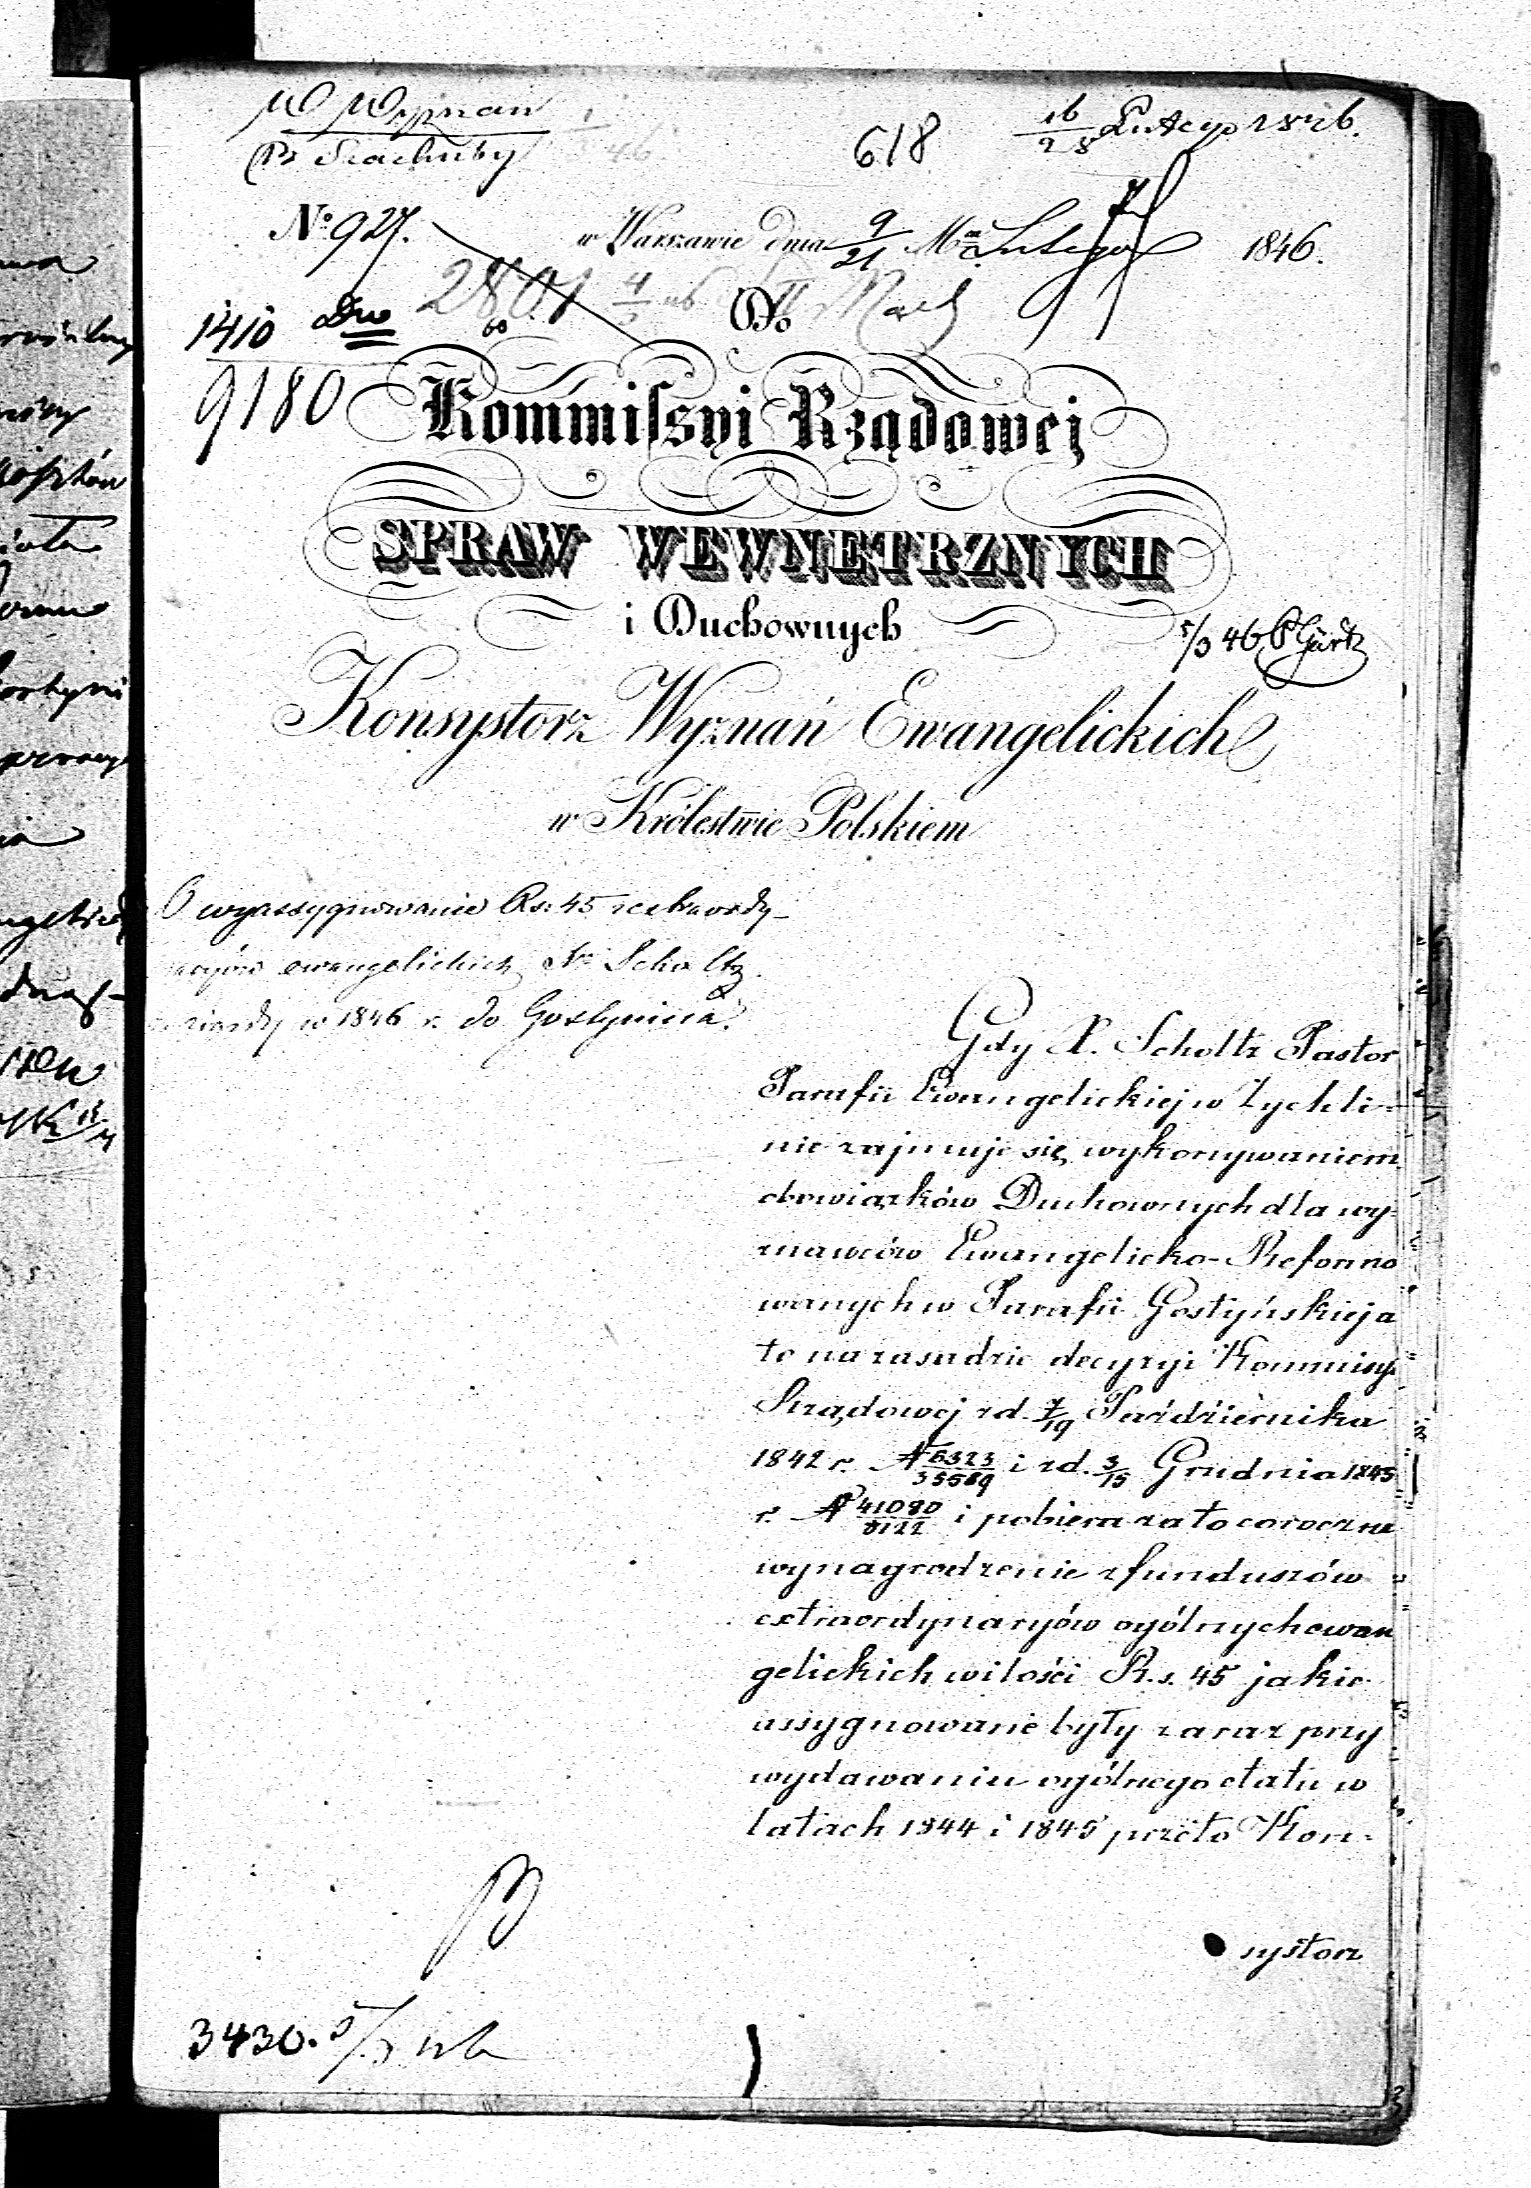 W Wyznań
B Rachuby
618
16/28 Lutego 1846.
№ 927.
w Warszawie dnia 9/21 Mca Lutego 1846.
2801
1410
9180
Do
Kommissyi Rządowej
SPRAW WEWNETRZNYCH
i Duchownych
5/3 46
Konsystorz Wyznań Ewangelickich
w Królestwie Polskiem
O wyassygnowanie Rs. 45 z extraordy-
naryów ewangelickich Xu Scholtz
w 1846 r. do Gostynina.
Gdy X. Scholtz Pastor
Parafii Ewangelickiej w Żychli-
nie zajmuje się wykonywaniem
obowiązków Duchownych dla wy-
znawców Ewangelicko-Reformo
wanych w Parafii Gostyńskiej a
to na zasadzie decyzyi Kommissyi
Rządowej z d. 7/19 Października
1842 r. № 6323/35589 i z d. 3/15 Grudnia 1845
r. № 41080/8122 i pobiera za to coroczne
wynagrodzenie z funduszów
extraordynaryów ogólnych ewan
gelickich w ilości R.s. 45 jakie
assygnowane były zaraz przy
wydawaniu ogólnego etatu w
latach 1844 i 1845 przeto Kon-
systorz
3430. 5/3